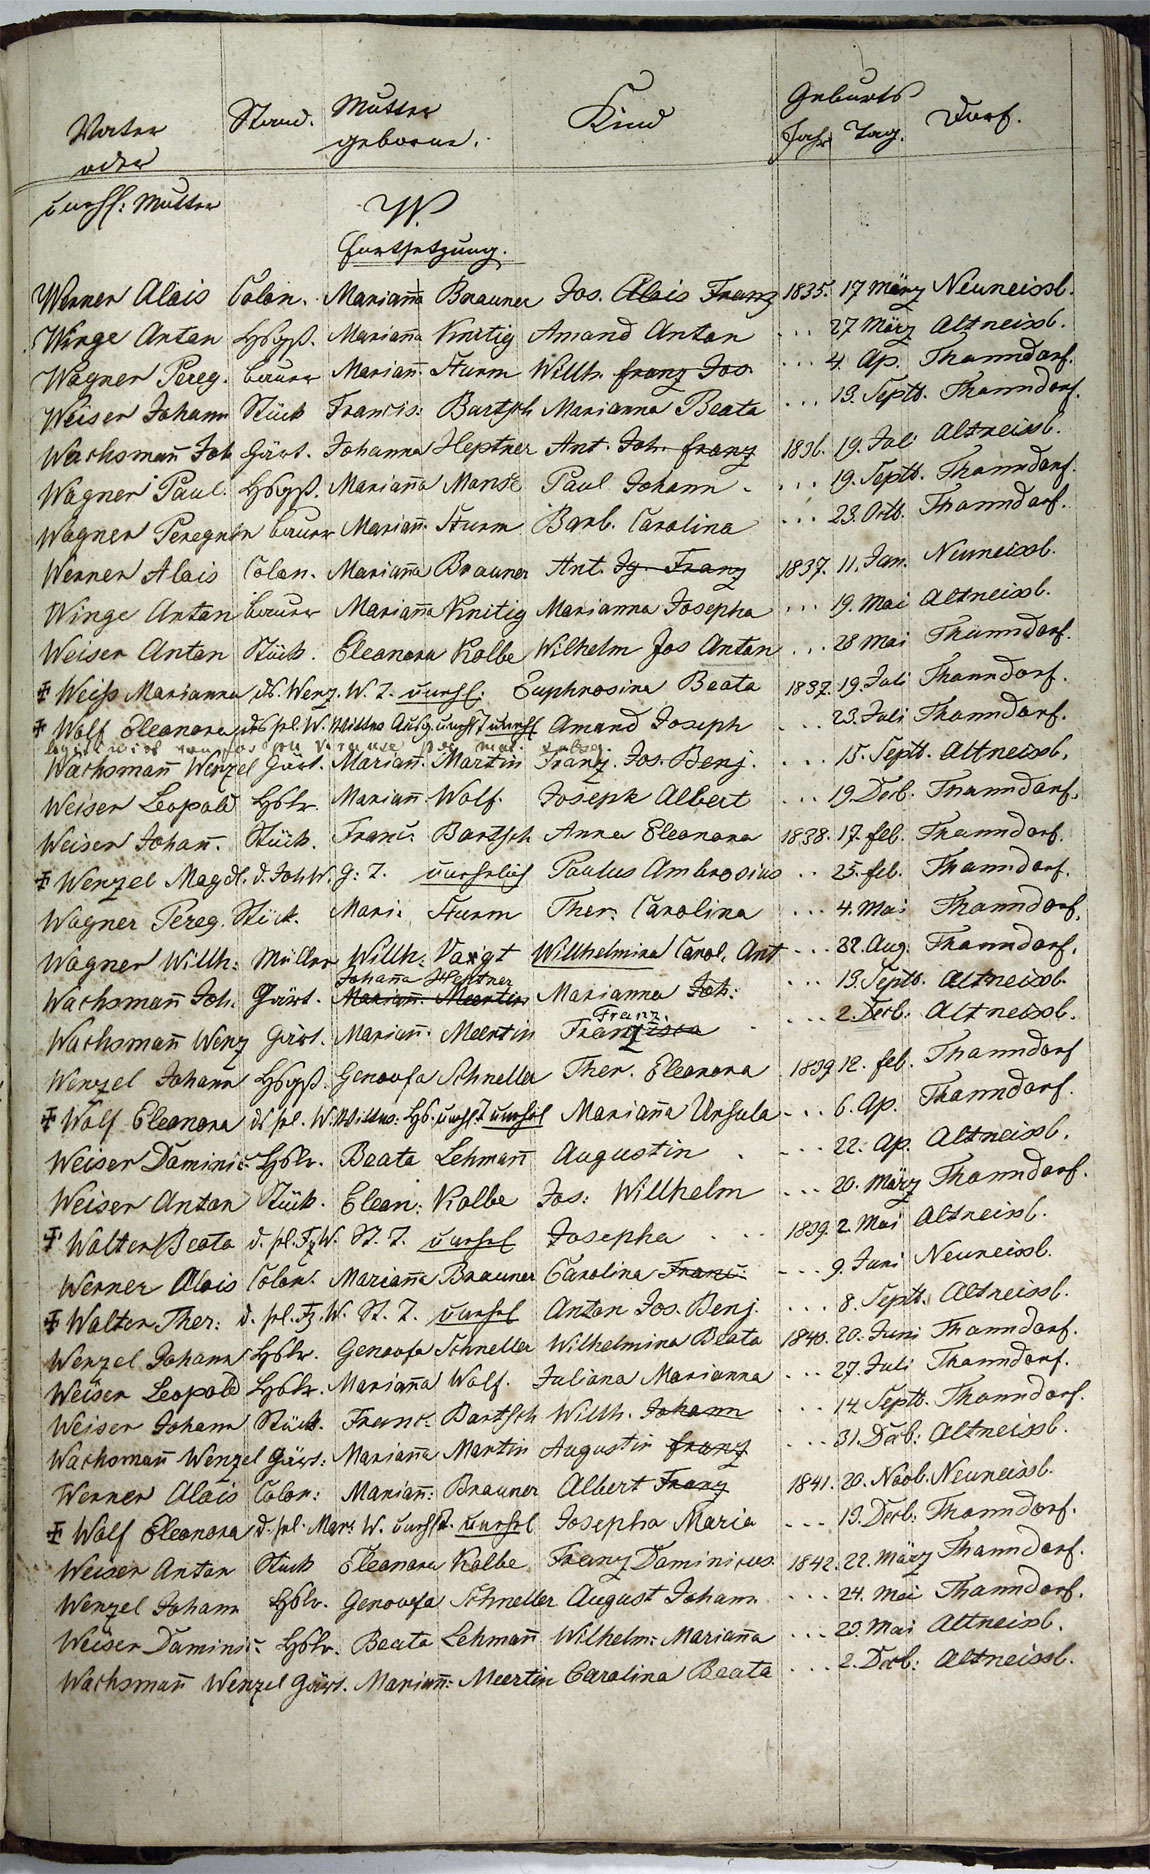 Vater Stand. Mutter Kind Geburts Dorf.
oder geborne. Jahr Tag.
unehl: Mutter W.
Fortsetzung.
Werner Alois Colon. Mariana Brauner Jos. Alois Franz 1835. 17 März Neuneissb.
Winge Anton Hsgß. Mariana Knitig Amand Anton ... 27 März Altneissb.
Wagner Pereg. bauer Mariann. Sturm Willh. franz Jos. ... 4. Ap. Thanndorf.
Weiser Johann Stück Francis: Bartsch Marianna Beata ... 13. Septb. Thanndorf.
Wachsmann Joh Gärt. Johanna Heptner Ant. Joh. franz 1836. 19. Juli Altneissb.
Wagner Paul. Hsgß. Mariana Paul Johann . ... 19. Septb. Thanndorf.
Wagner bauer Mariann. Sturm Barb. Carolina ... 23. Octb. Thanndorf.
Werner Alois Colon. Mariana Brauner Ant. Ig. Franz 1837. 11. Jan. Neuneissb.
Winge Anton bauer Mariana Knitig Marianna Josepha ... 19. Mai Altneissb.
Weiser Anton Stück. Eleonora Kolbe Wilhelm Jos Anton ... 28 Mai Thanndorf.
Weiss Marianna ds. Wenz. W. T. unehl. Euphrosina Beata 1837. 19. Juli Thanndorf.
Wolf Eleonora unehl Amand Joseph ... 23. Juli Thanndorf.
Wachsmann Wenzel Gärt. Mariann. Martin Franz. Jos. Benj. ... 15. Septb. Altneissb.
Weiser Leopold Hslr. Mariann. Wolf. Joseph Albert ... 19. Decb. Thanndorf.
Weiser Johann. Stück. Franc. Bartsch Anna Eleonora 1838. 17. feb. Thanndorf.
Wenzel Magdl. d. Joh W. G: T. unehelich Paulus Ambrosius .. 25. feb. Thanndorf.
Wagner Pereg. Stück. Mari: Sturm Ther: Carolina ... 4. Mai Thanndorf.
Wagner Willh: Müller Willh: Voigt Willhelmina Carol. Ant ... 22. Aug. Thanndorf.
Johanna Heptner
Wachsmann Joh. Gärt. Mariann. Meertin Marianna Joh: ... 13. Septb. Altneissb.
Franz.
Wachsmann Wenz Gärt. Mariann. Meertin Francisca ... 2. Decb. Altneissb.
Wenzel Johann Hsgß. Genovefa Schneller Ther. Eleonora 1839 12. feb. Thanndorf
Wolf Eleonora unehel Mariana Ursula ... 6. Ap. Thanndorf.
Weiser Dominic. Hslr. Beata Lehmann Augustin . ... 22. Ap. Altneissb.
Weiser Anton Stück. Eleon: Kolbe Jos: Willhelm ... 20. März Thanndorf.
Walter Beata d. sel. Fz W. St. T. unehel Josepha ... 1839. 2 Mai Altneissb.
Werner Alois Colon. Mariana Brauner Carolina Franc: ... 9. Juni Neuneissb.
Walter Ther: d. sel. Fz. W. St. T. unehel Anton Jos. Benj. ... 8. Septb. Altneissb.
Wenzel Johann Hslr. Genovefa Schneller Wilhelmina Beata 1840. 20. Juni Thanndorf.
Weiser Leopold Hslr. Mariana Wolf. Juliana Marianna ... 27. Juli Thanndorf.
Weiser Johann Stück. Franc. Bartsch Willh. Johann ... 14. Septb. Thanndorf.
Wachsmann Wenzel Gärt. Mariana Martin Augustin franz ... 31. Decb: Altneissb.
Werner Alois Colon: Mariann: Brauner Albert Franz 1841. 20. Novb. Neuneissb.
Wolf Eleonora d. sel. W. unehel Josepha Maria ... 13. Decb: Thanndorf.
Weiser Anton Stück Eleonora Kolbe Franz Dominicus 1842. 22. März Thanndorf.
Wenzel Johann Hslr. Genovefa Schneller August Johann ... 24. Mai Thanndorf.
Weiser Dominic. Hslr. Beata Lehmann Wilhelm: Mariana ... 29. Mai Altneissb.
Wachsmann Wenzel Gärt. Mariann: Meertin Carolina Beata ... 2. Decb: Altneissb.